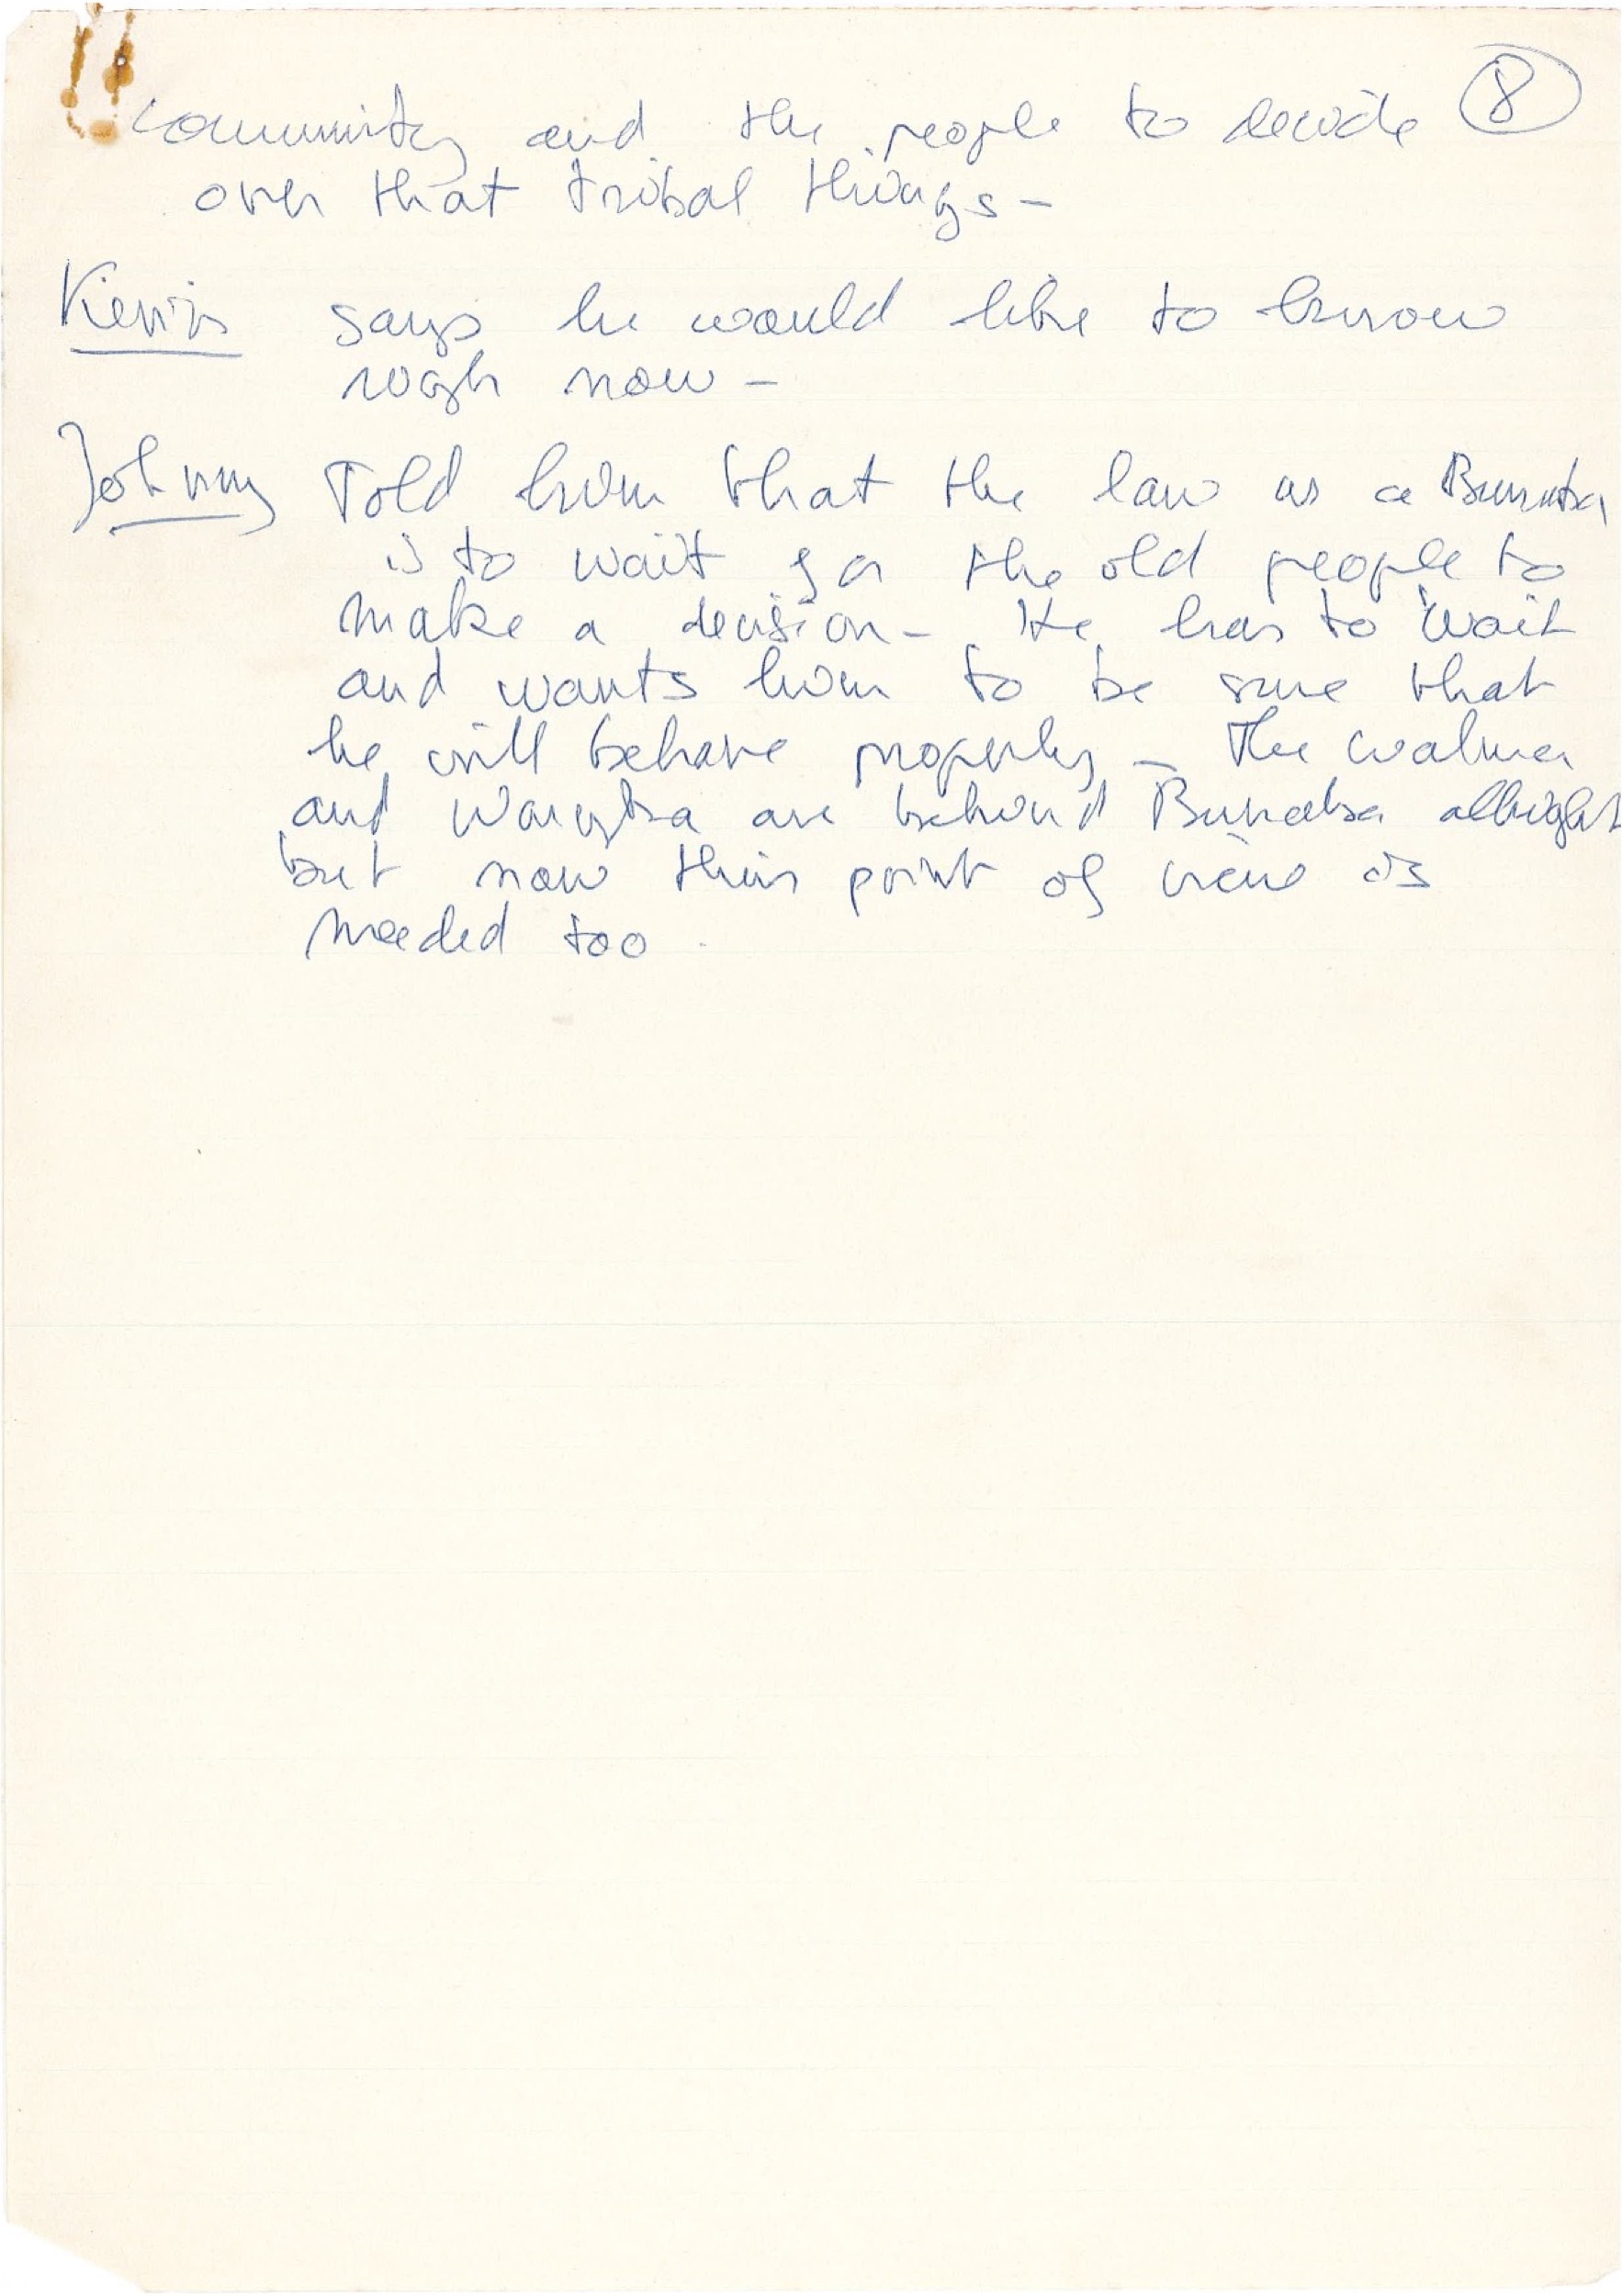 8
community and the people to decide
over that tribal things -
Kevin says he would like to know
now -
Johnny Told him that the law as a Bunuba
is to wait for the old people to
make a decision - He has to wait
and wants him to be sure that
he will behave properly - The Walmer
and are behind Bunaba allright
but now their point of view is
needed too.